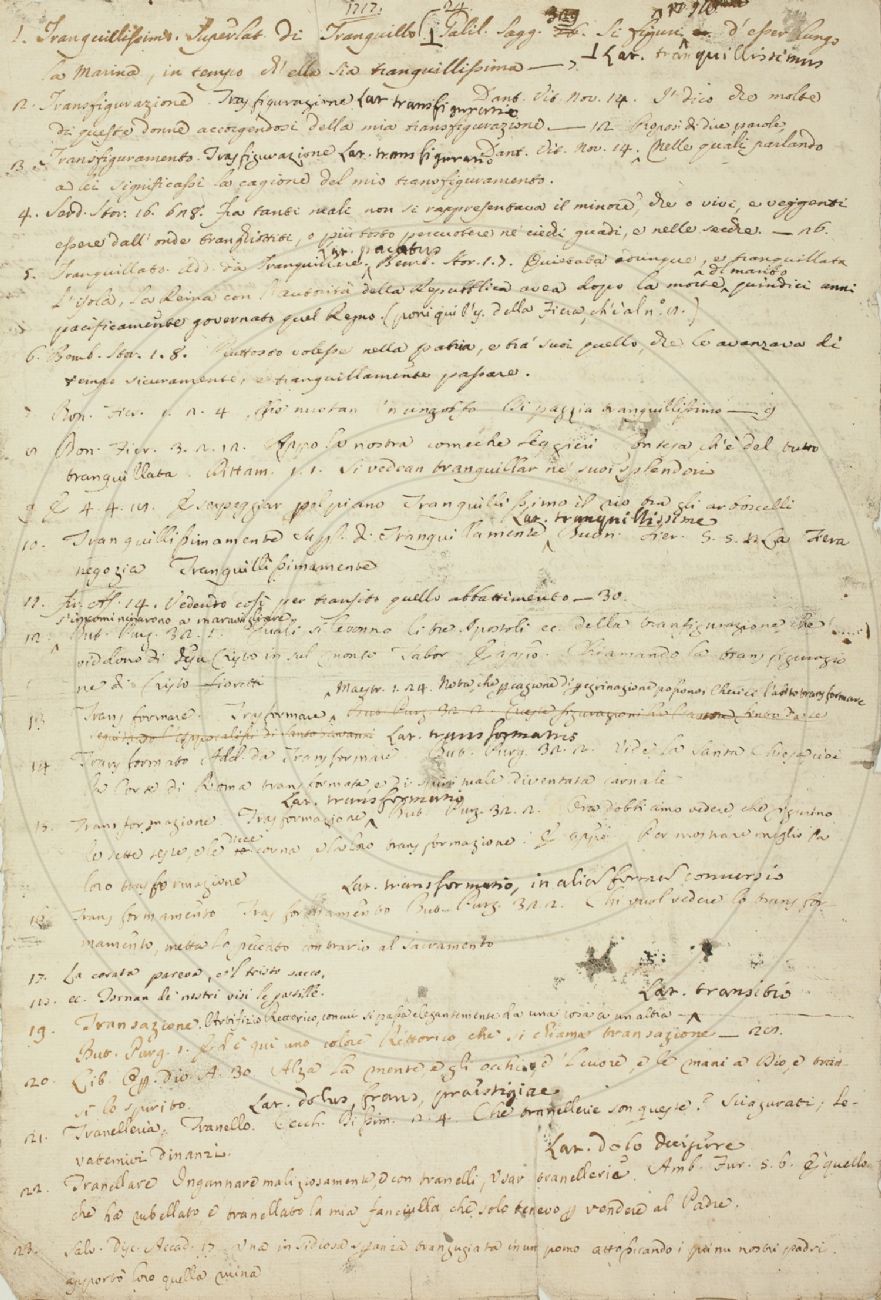 1717. 24.
1. Tranquillissimo. Superlat. di Tranquillo. Galil. Sagg. 309 Si figuri d'esser lungo
la Marina, in tempo ch'ella sia tranquillissima — Lat. tranquillissimus
2. Transfigurazione Trasfigurazione Lat. transfiguratio Dant. Vit. Nov. 14. I' dico che molte
di queste donne accorgendosi della mia transfigurazione. — 12 Proposi di dire parole,
3. Transfiguramento. Trasfigurazione Lat. transfiguratio Dant. Vit. Nov. 14. Nelle quali parlando
a lei significassi la cagione del mio transfiguramento.
4. Segd. Stor. 16. 618. Fra tanti mali non si rappresentava il minore, che o vivi, e veggenti
essere dall'onde tranghiottiti, o piuttosto percuotere ne' ciechi guadi, e nelle secche. — 26.
5. Tranquillato. Add. da Tranquillare. Lat. pacatus Bemb. Stor. 1. 7. Quietata adunque, e tranquillata
l'isola, la Reina con l'autorità della Repubblica avea dopo la morte di marito quindici anni
pacificamente governato quel Regno. (poni qui l'y. della Fiera, ch'è al n.° 8.)
6. Bemb. Stor. 1. 8. Piuttosto volesse nella patria, e tra' suoi quello, che le avanzava di
tempo sicuramente, e tranquillamente passare.
7. Bon. Fier. 1. 2. 4 Che nuotan 'n un golfo Di pazzia tranquillissimo — 9
8. Bon. Fier. 3. 2. 12. Appo la nostra comechè leggieri Intesa ch'è del tutto
tranquillata. Rittam. 1. 1. Si vedean tranquillar ne' suoi splendori
9. E 4. 4. 19. E serpeggiar pel piano Tranquillissimo il rio tra gli arboscelli
10. Tranquillissimamente Superl. di Tranquillamente Lat. tranquillissime Buon. Fier. 5. 5. 2 La Fiera
negozia Tranquillissimamente
11. 14. Vedendo così per transito quello abbattimento — 30.
12. But. Purg. 32. 1. Quali si levonno li tre Apostoli ec. della transfigurazione, che s'incominciarono a maravigliare
viddeno di Jesu Cristo in sul monte Tabor. E appo. Chiamando la transfigurazio-
ne di Cristo fioretti
13. Transformare. Trasformare Maestr. 1. 24. Nota, che per cagione di peregrinazione possono i cherici l'abito transformare
14. Transformato Add. da Transformare Lat. transformatus But. Purg. 32. 2. Vide la santa Chiesa, cioè
la Corte di Roma transformata, e di spirituale diventata carnale
15. Transformazione Trasformazione Lat. transformatio But. Purg. 32. 2. Ora dobbiamo vedere, che figurino
le sette teste, e le diece corna, e la loro transformazione. E appo. Per mostrare meglio la
loro transformazione Lat. transformatio, in alias formas conversio
16. Transformamento Trasformamento But. Purg. 32. 2. Chi vuol vedere lo transfor-
mamento, metta lo peccato contrario al Sacramento
17. La corata pareva, e 'l tristo sacco,
18. ec. Tornan de' nostri visi le postille.
19. Transazione. Artifizio Retorico, con cui si passa elegantemente da una cosa a un'altra — Lat. transitio
But. Purg. 1. Ed è qui uno colore Rettorico che si chiama transazione — 28.
20. Lib. Op. Div. A. 30. Alza la mente, e gli occhi, e 'l cuore, e le mani a Dio, e tran-
si lo spirito.
21. Tranelleria, Tranello. Lat. dolus, fraus, praestigiae Cecch. Dissim. 2. 4. Che tranellerie son queste? Sciagurati; le-
vatemivi dinanzi.
22. Tranellare Ingannare maliziosamente, e con tranelli, Usar tranellerie. Lat. dolo decipere Amb. Fur. 5. 6. E quello
che ha rubellato e tranellato la mia fanciulla che solo tenevo per vendere al Padre.
23. Salv. Disc. Accad. 17. Una insidiosa spanza trangugiata in un pomo attossicando i primi nostri padri
apportò loro quella ruina